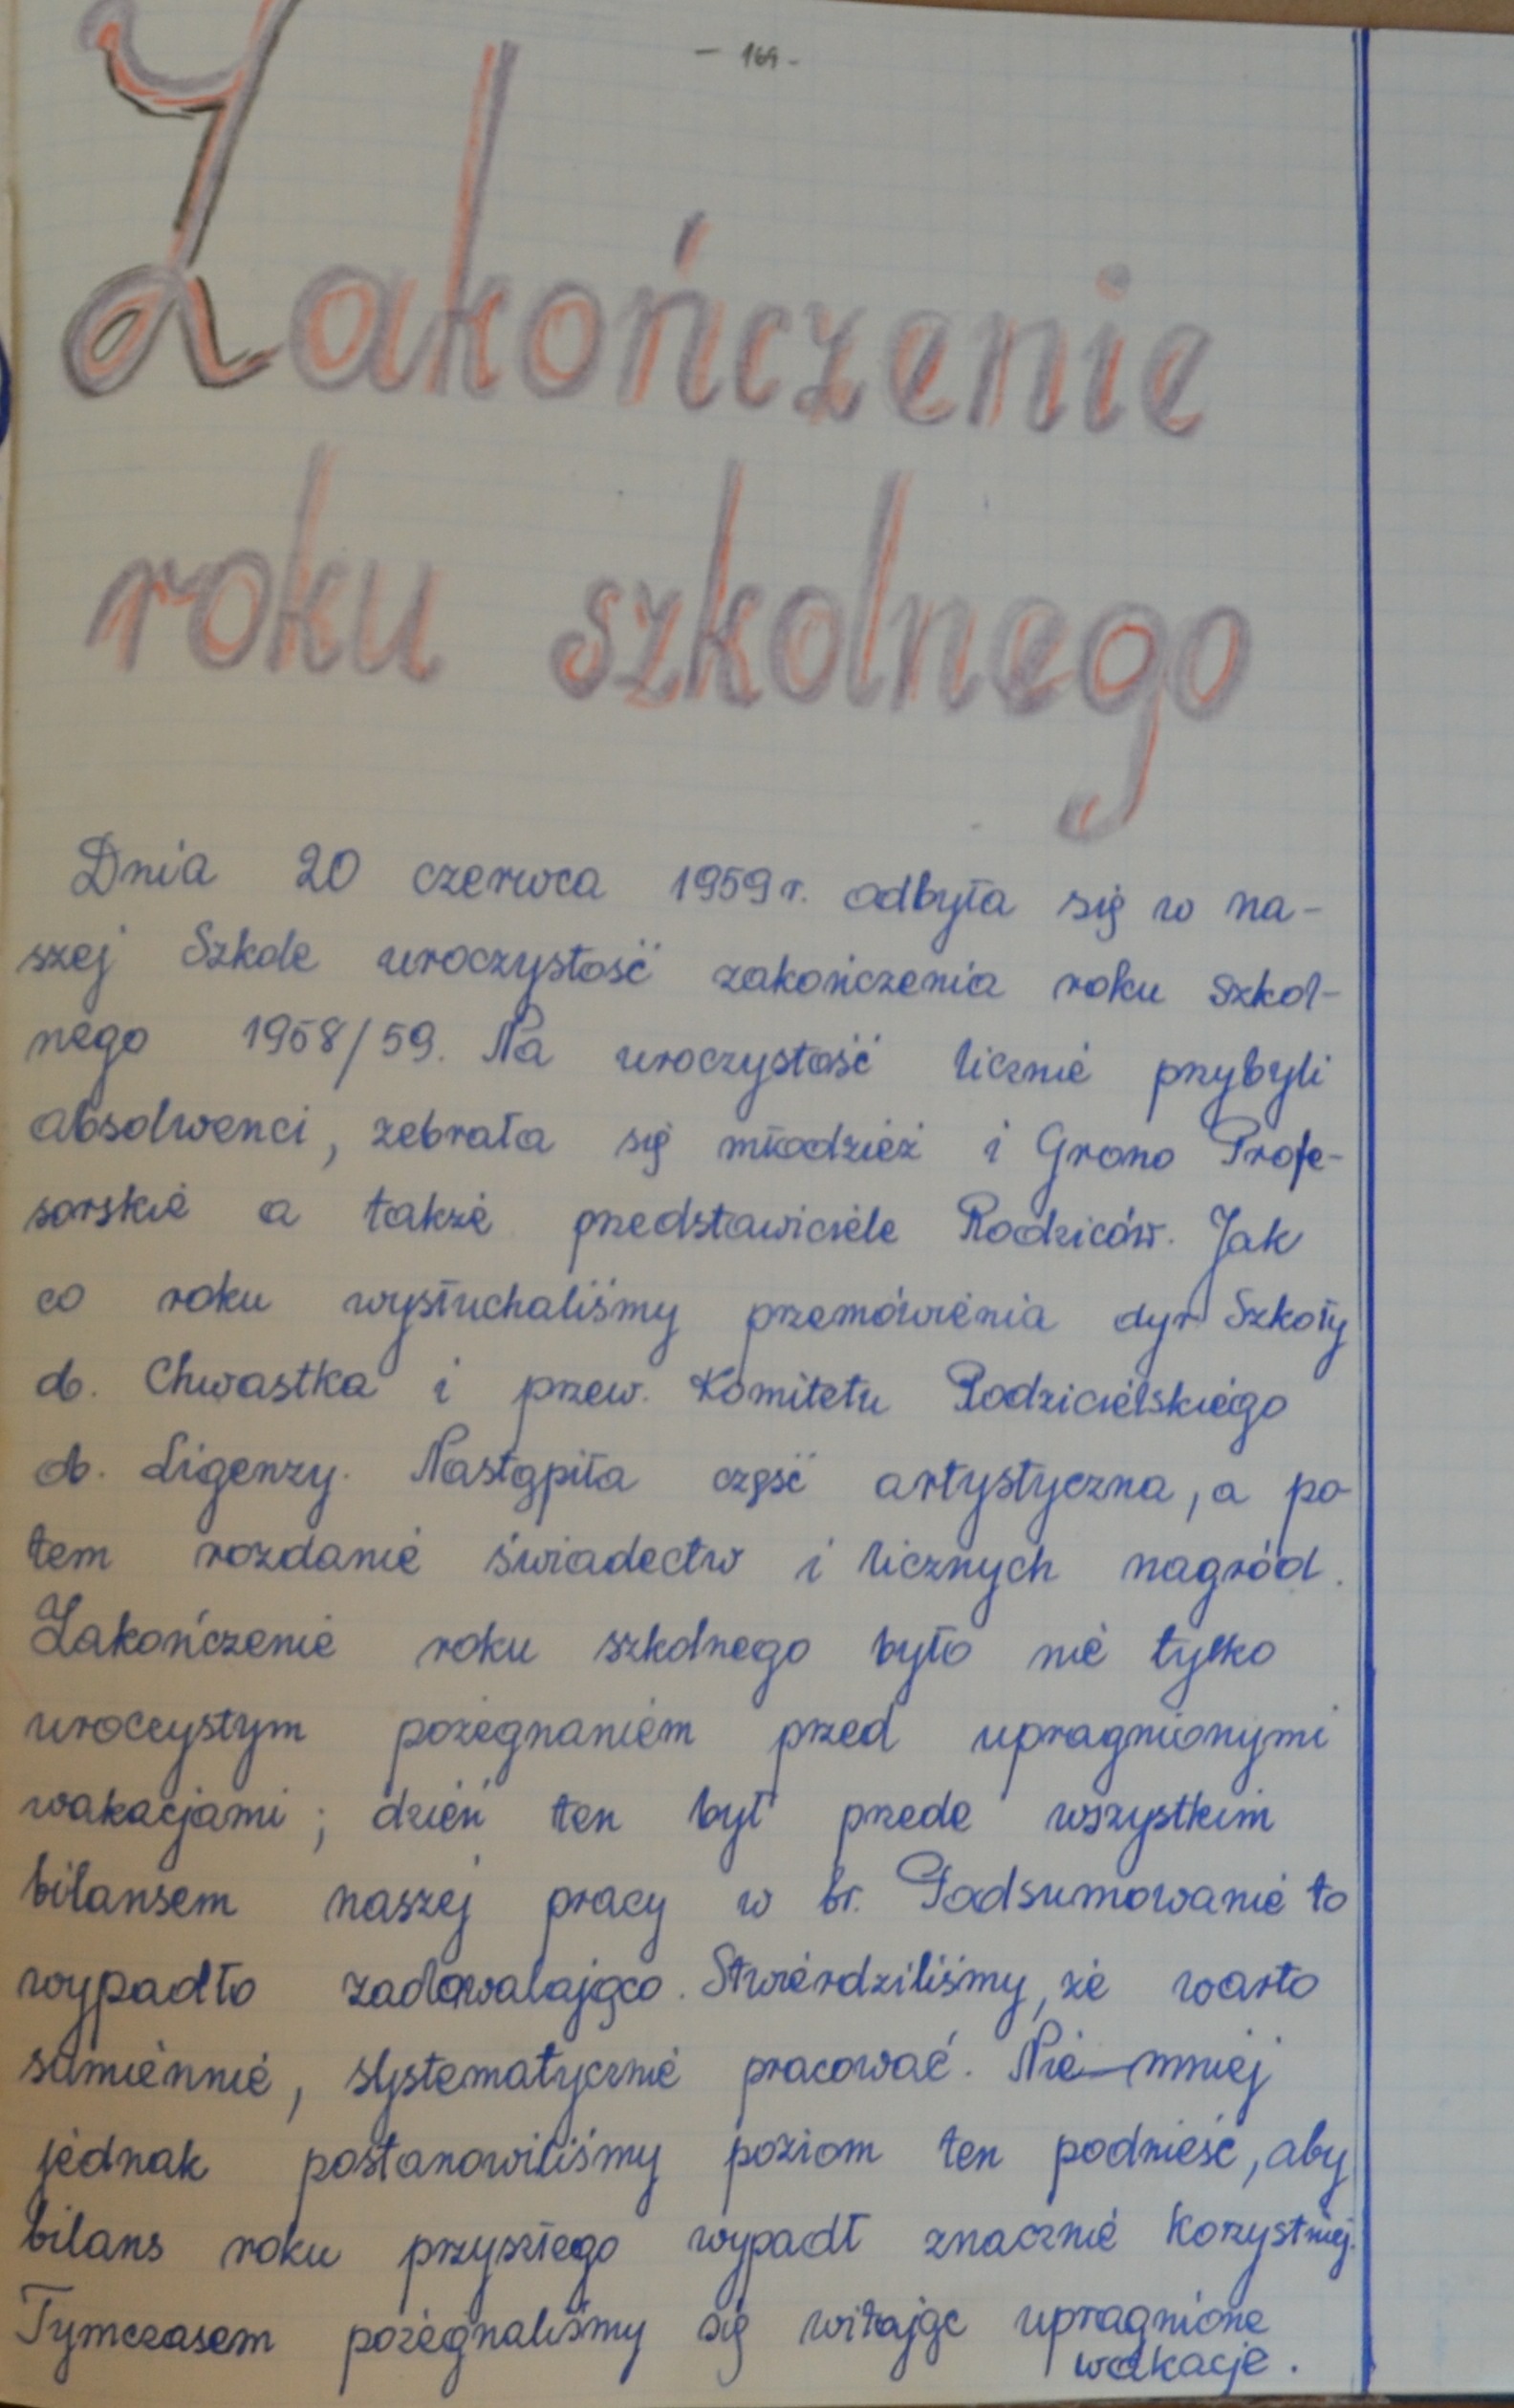 - 169 -
Zakończenie
roku szkolnego
Dnia 20 czerwca 1959 r. odbyła się w na-
szej Szkole uroczystość zakończenia roku szkol-
nego 1958/59. Na uroczystość licznie przybyli
absolwenci, zebrała się młodzież i Grono Profe-
sorskie a także przedstawiciele Rodziców. Jak
co roku wysłuchaliśmy przemówienia dyr Szkoły
ob. Chwastka i przew. Komitetu Rodzicielskiego
ob. Ligenzy. Nastąpiła część artystyczna, a po
tem rozdanie świadectw i licznych nagród.
Zakończenie roku szkolnego było nie tylko
uroczystym pożegnaniem przed upragnionymi
wakacjami; dzień ten był przede wszystkim
bilansem naszej pracy w br. Podsumowanie to
wypadło zadowalająco. Stwierdziliśmy, że warto
sumiennie, systematycznie pracować. Nie mniej
jednak postanowiliśmy poziom ten podnieść, aby
bilans roku przyszłego wypadł znacznie korzystniej.
Tymczasem pożegnaliśmy się witając upragnione
wakacje.